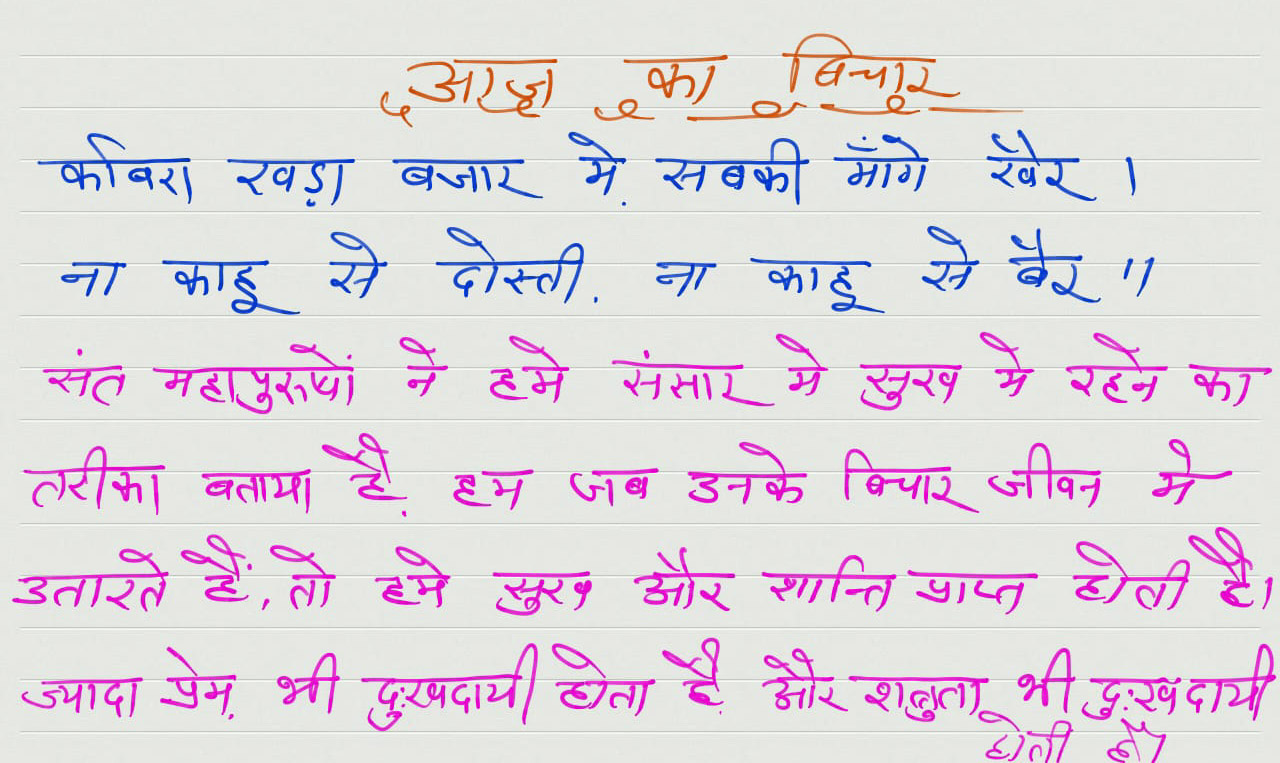 आज का बिचार
कबिरा खड़ा बजार में सबकी माँगे खैर ।
ना काहू से दोस्ती. ना काहू से बैर ॥
संत महापुरुषों ने हमे संसार मे सुख मे रहने का
तरीका बताया है. हम जब उनके बिचार जीवन मे
उतारते हैं, तो हमे सुख और शान्ति प्राप्त होती है।
ज्यादा प्रेम. भी दुःखदायी होता है. और शत्रुता भी दुःखदायी
होती है।